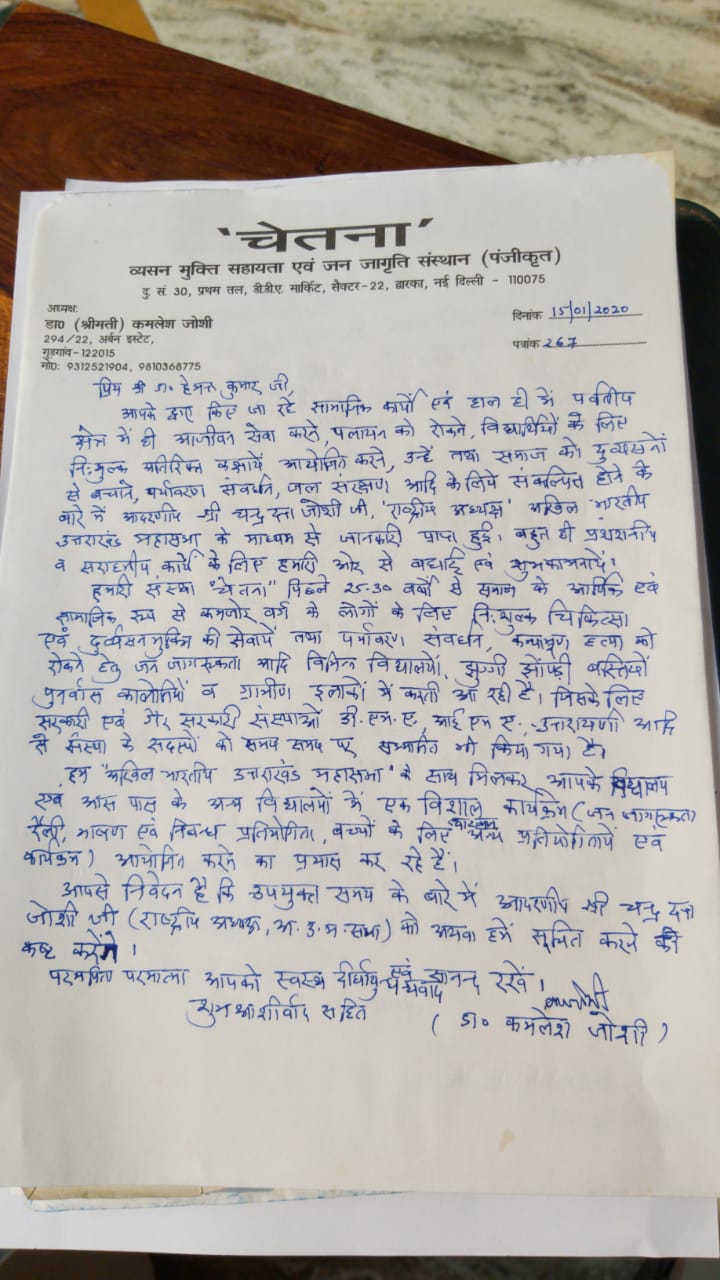 'चेतना'
व्यसन मुक्ति सहायता एवं जन जागृति संस्थान (पंजीकृत)
दु. सं. 30, प्रथम तल, डी.डी.ए. मार्किट, सैक्टर-22, द्वारका, नई दिल्ली - 110075
अध्यक्ष:
डा0 (श्रीमती) कमलेश जोशी
294/22, अर्बन इस्टेट,
गुड़गांव-122015
मो0: 9312521904, 9810368775
दिनांक 15/01/2020
पत्रांक 267
प्रिय श्री डा० हेमन्त कुमार जी,
आपके द्वारा किए जा रहे सामाजिक कार्यों एवं हाल ही में पर्वतीय
क्षेत्र में ही आजीवन सेवा करने, पलायन को रोकने, विद्यार्थियों के लिए
नि:शुल्क अतिरिक्त कक्षायें आयोजित करने, उन्हें तथा समाज को दुर्व्यसनों
से बचाने, पर्यावरण संवर्धन, जल संरक्षण आदि के लिये संकल्पित होने के
बारे में आदरणीय श्री चन्द्र दत्त जोशी जी, 'राष्ट्रीय अध्यक्ष' अखिल भारतीय
उत्तराखंड महासभा के माध्यम से जानकारी प्राप्त हुई। बहुत ही प्रशंशनीय
व सराहनीय कार्य के लिए हमारी ओर से बधाई एवं शुभकामनायें।
हमारी संस्था "चेतना" पिछले 25-30 वर्षों से समाज के आर्थिक एवं
सामाजिक रूप से कमजोर वर्ग के लोगों के लिए नि:शुल्क चिकित्सा
एवं दुर्व्यसन मुक्ति की सेवायें तथा पर्यावरण संवर्धन, कन्याभ्रूण हत्या को
रोकने हेतु जन जागरूकता आदि विभिन्न विद्यालयों, झुग्गी झोंपड़ी बस्तियों
पुनर्वास कालोनियों व ग्रामीण इलाकों में करती आ रही है। जिसके लिए
सरकारी एवं गैर सरकारी संस्थाओं डी.एम.ए., आई एम ए., उत्तरायणी आदि
से संस्था के सदस्यों को समय समय पर सम्मानित भी किया गया है।
हम "अखिल भारतीय उत्तराखंड महासभा" के साथ मिलकर आपके विद्यालय
एवं आस पास के अन्य विद्यालयों में एक विशाल कार्यक्रम (जन जागरूकता
रैली, भाषण एवं निबन्ध प्रतियोगिता, बच्चों के लिए अन्य प्रतियोगितायें एवं
कार्यक्रम) आयोजित करने का प्रयास कर रहे हैं।
आपसे निवेदन है कि उपयुक्त समय के बारे में आदरणीय श्री चन्द्र दत्त
जोशी जी (राष्ट्रीय अध्यक्ष, अ. उ. म. सभा) को अथवा हमें सूचित करने की
कष्ट करेंगे।
परमपिता परमात्मा आपको स्वस्थ दीर्घायु एवं आनन्द रखें।
धन्यवाद
शुभ आशीर्वाद सहित
(डा० कमलेश जोशी)